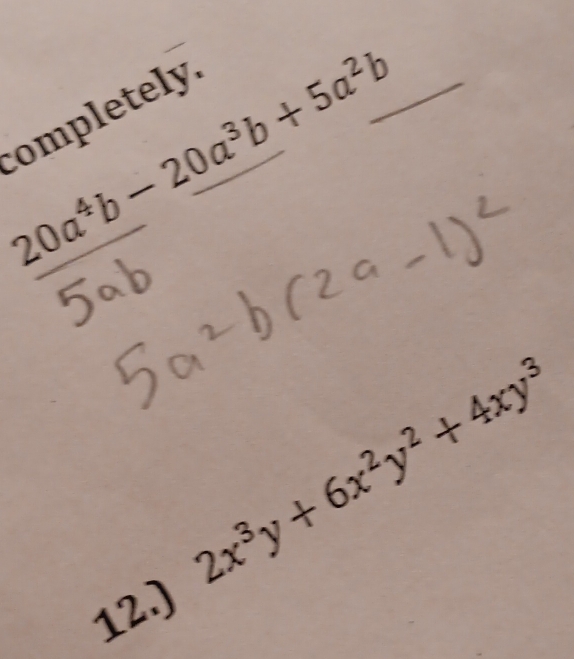 completely.
20a⁴b − 20a³b + 5a²b
5ab
5a²b(2a-1)²
12.) 2x³y + 6x²y² + 4xy³